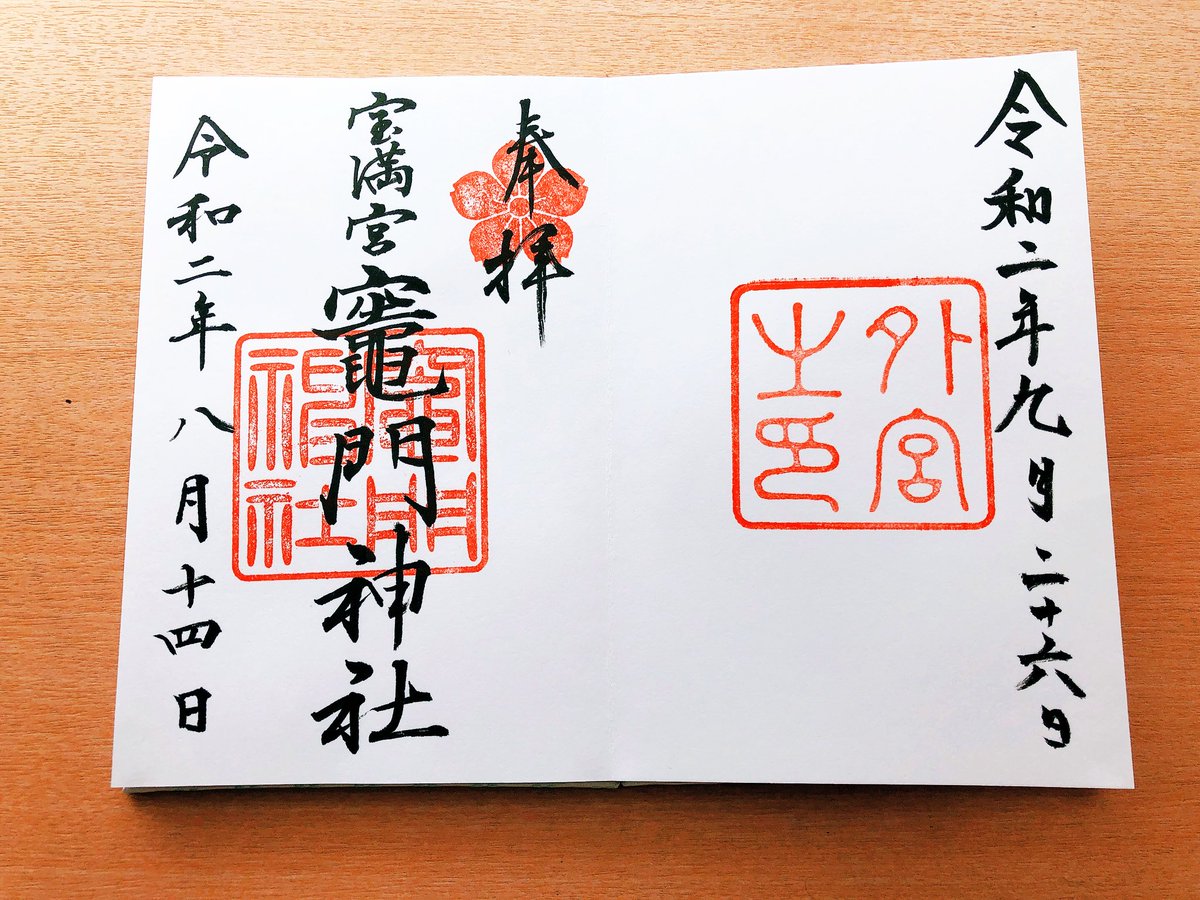 令和二年九月二十六日
外宮之印
奉拝
宝満宮
竈門神社
竈門神社
令和二年八月十四日